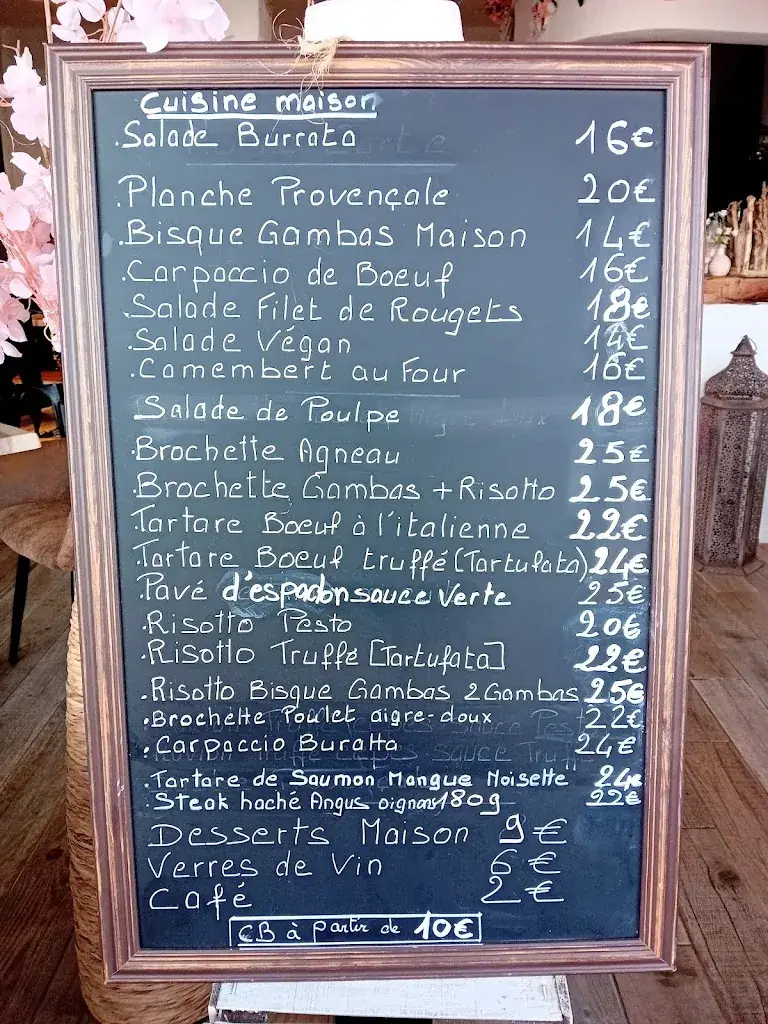 Cuisine maison
.Salade Burrata 16€
.Planche Provençale 20€
.Bisque Gambas Maison 14€
.Carpaccio de Boeuf 16€
.Salade Filet de Rougets 18€
.Salade Végan 14€
.Camembert au Four 16€
Salade de Poulpe 18€
.Brochette Agneau 25€
.Brochette Gambas + Risotto 25€
.Tartare Boeuf à l'italienne 22€
.Tartare Boeuf truffé (Tartufata) 24€
.Pavé d'espadon sauce Verte 25€
.Risotto Pesto 20€
.Risotto Truffe [Tartufata] 22€
.Risotto Bisque Gambas 2 Gambas 25€
.Brochette Poulet aigre-doux 22€
.Carpaccio Buratta 24€
.Tartare de Saumon Mangue Noisette 24€
.Steak haché Angus oignons 180g 22€
Desserts Maison 9€
Verres de Vin 6€
Café 2€
CB à partir de 10€